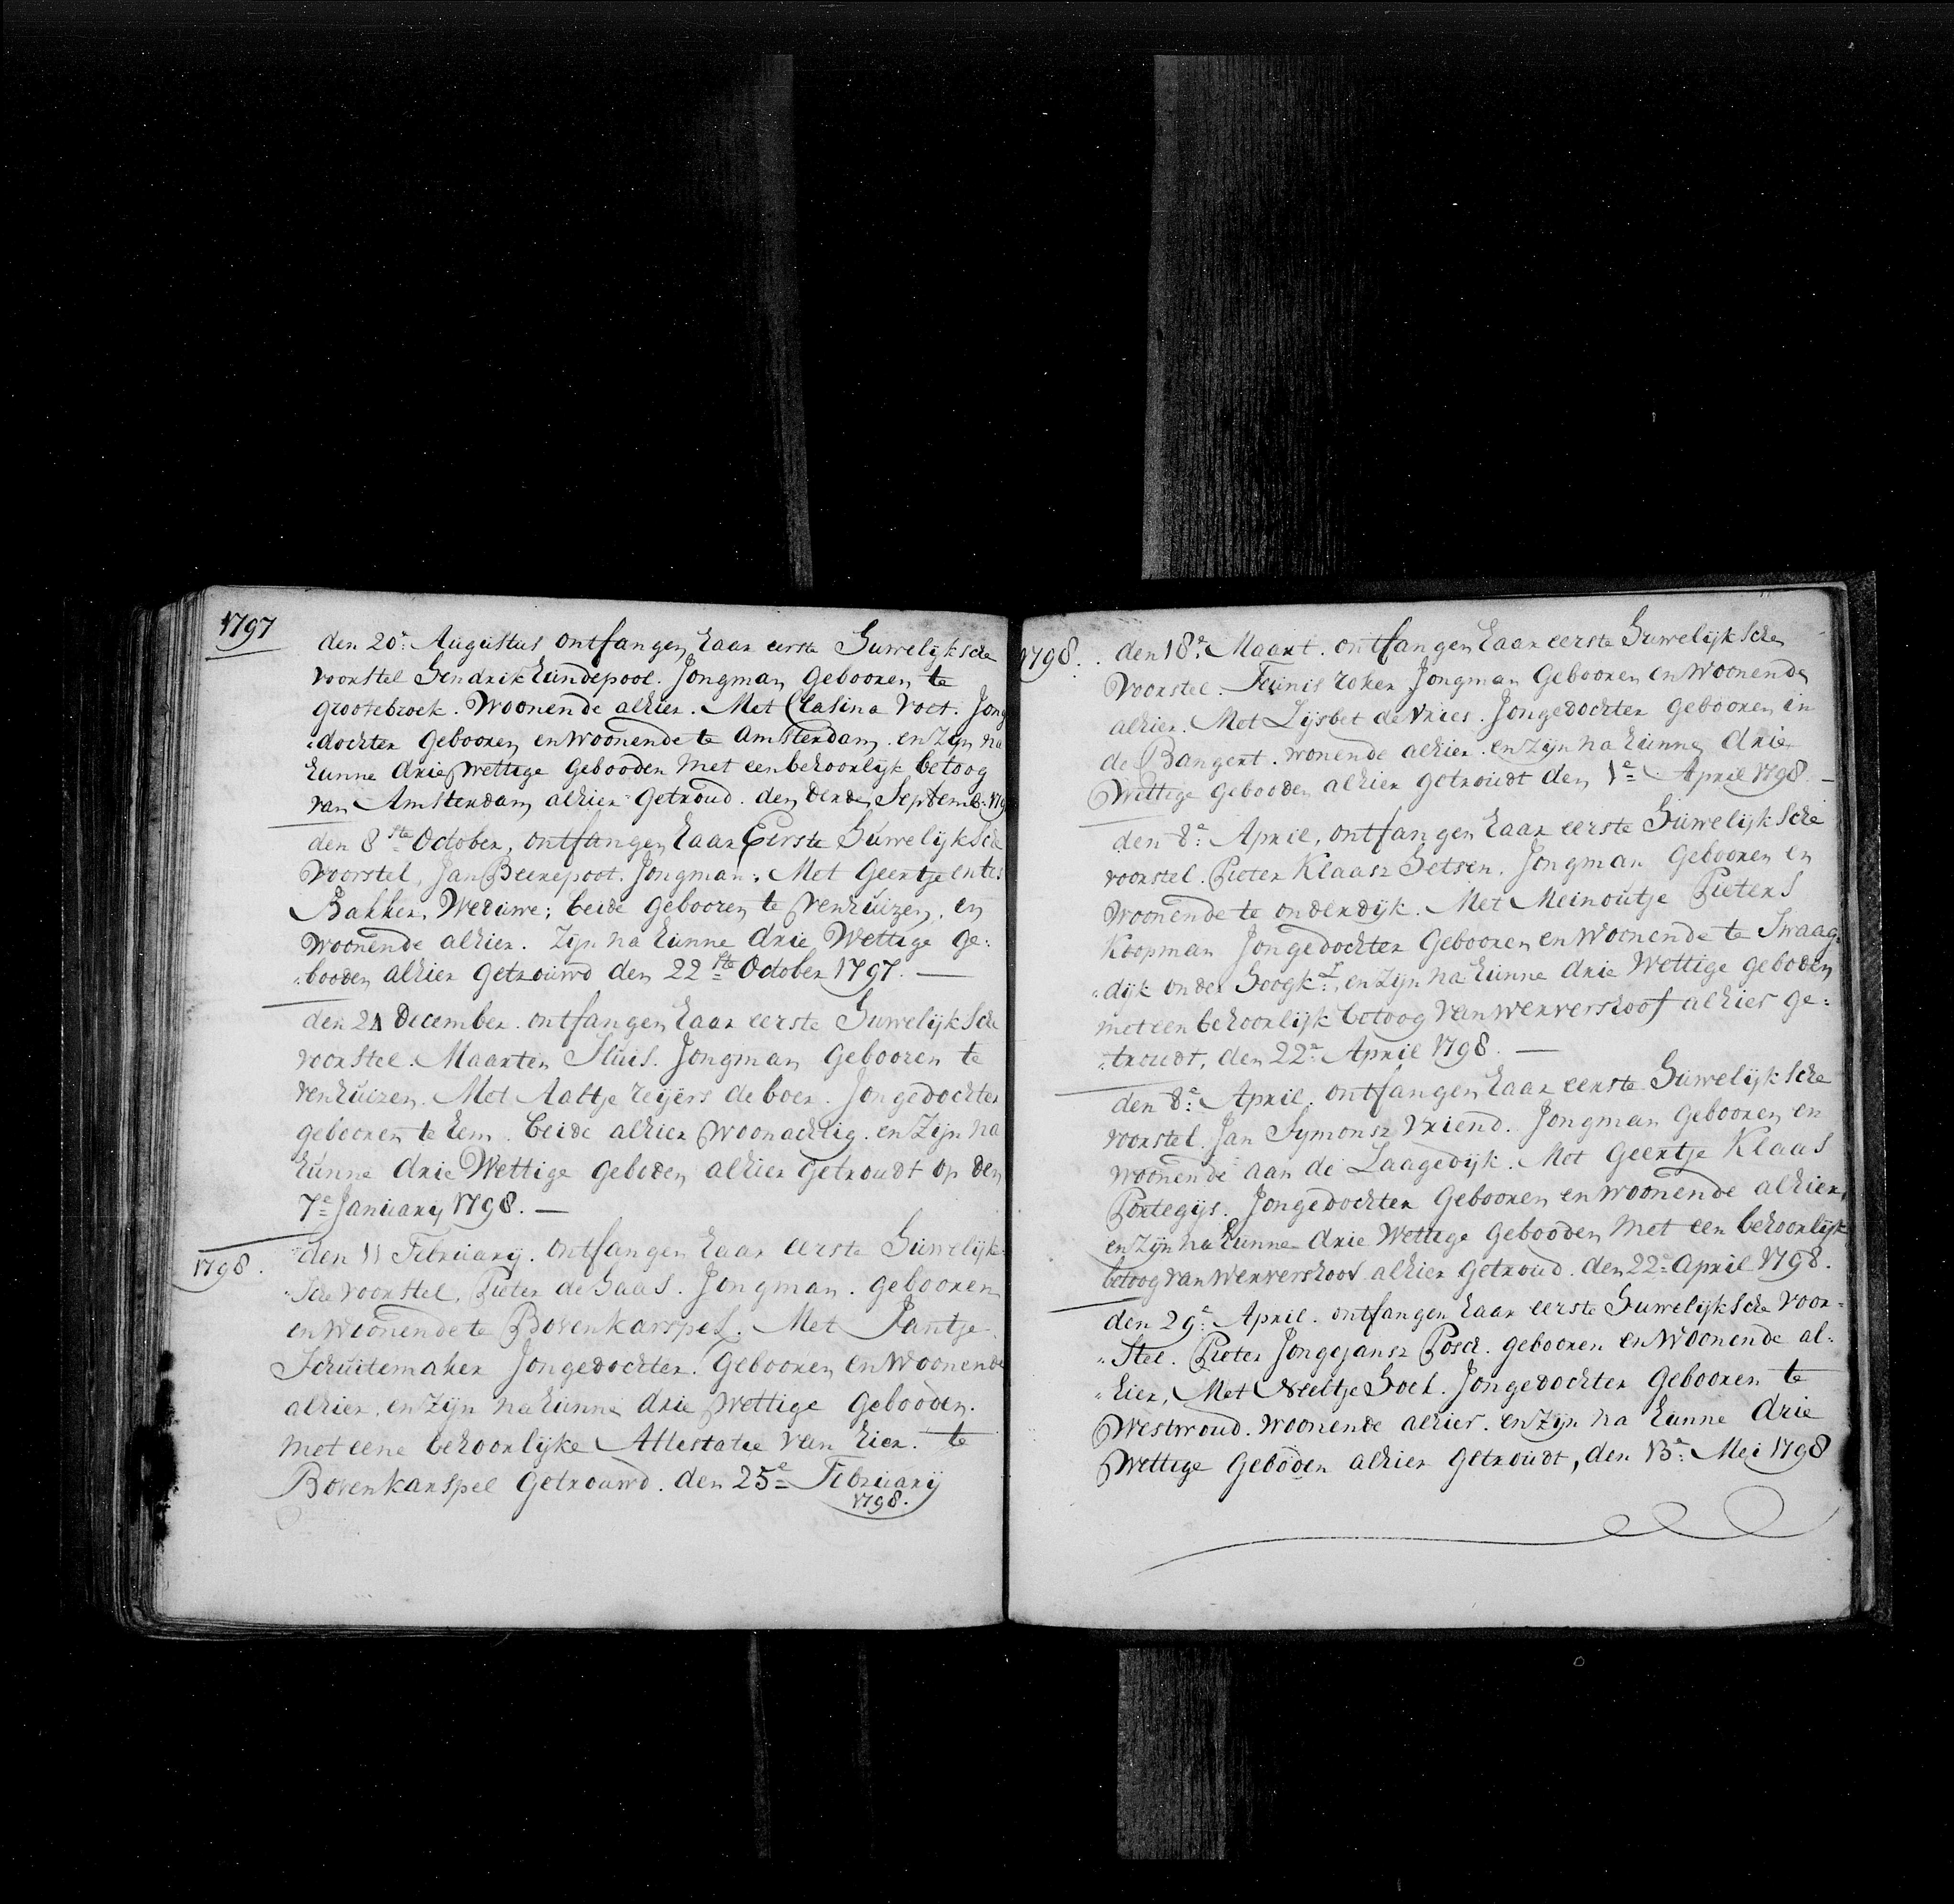 1797
den 20e Augustus ontfangen haar eerste Huwelijksche
voorstel Hendrik hundepool. Jongman Gebooren te
grootebroek. Woonende alhier. Met Clasina Voet. Jong
dochter Gebooren en woonende te Amsterdam. en zijn na
hunne drie wettige Gebooden Met een behoorlijk betoog
van Amsterdam alhier Getroud. den derde Septemb: 179
den 8ste October, ontfangen haar Eerste Huwelijksche
Voorstel, Jan Beerepoot. Jongman. Met Geertje entes
Bakker, Weduwe; beide gebooren te Venhuizen, en
woonende alhier. Zijn na hunne drie Wettige ge:
booden alhier getrouwd den 22ste October 1797. —
den 21 December. ontfangen haar eerste Huwelijksche
voorstel. Maarten Sluis. Jongman Gebooren te
venhuizen. Met Aaltje reijers de boer. Jongedochter
gebooren te hem. beide alhier woonachtig. en Zijn na
hunne drie Wettige Geboden alhier Getroudt op den
7e January 1798. —
1798.
den 11 February. ontfangen haar eerste Huwelijk
sche voorstel, Pieter de Haas. Jongman. gebooren
en Woonende te Bovenkarspel. Met Jantje
Schuitemaker Jongedochter. Gebooren en woonende
alhier, en Zijn na hunne drie wettige Gebooden.
met eene behoorlijke Attestatie van hier. te
Bovenkarspel Getrouwd. den 25e February
1798.
1798.
den 18e Maart. ontfangen haar eerste Huwelijksche
Voorstel. Teunis roker Jongman Gebooren en Woonende
alhier. Met Lijsbet de vries. Jongedochter Gebooren in
de Bangert. wonende alhier. en zijn na hunne drie
Wettige Gebooden alhier getroudt den 1e April 1798. —
den 8e April, ontfangen haar eerste Huwelijksche
voorstel. Pieter Klaasz Hetsen. Jongman Gebooren en
woonende te onderdijk. Met Meinoutje Pieters
Koopman Jongedochter Gebooren en Woonende te Swaag
dijk onder Hoogk:l, en zijn na hunne drie Wettige geboden
met een behoorlijk betoog van wervershoof alhier ge:
troudt, den 22e April 1798. —
den 8e April. ontfangen haar eerste Huwelijksche
voorstel. Jan Symonsz Vriend. Jongman Gebooren en
woonende aan de Laagedijk. Met Geertje Klaas
Portegijs. Jongedochter Gebooren en woonende alhier,
en zijn na hunne drie Wettige Gebooden Met een behoorlijk
betoog van wervershoof alhier Getroud. den 22e April 1798.
den 29e April. ontfangen haar eerste Huwelijksche Voor=
stel. Pieter Jongejansz Posch. gebooren en Woonende al:
hier, Met Neeltje Hoek. Jongedochter Gebooren te
Westwoud. woonende alhier. en zijn na hunne drie
Wettige Geboden alhier Getroudt, den 13e Mei 1798